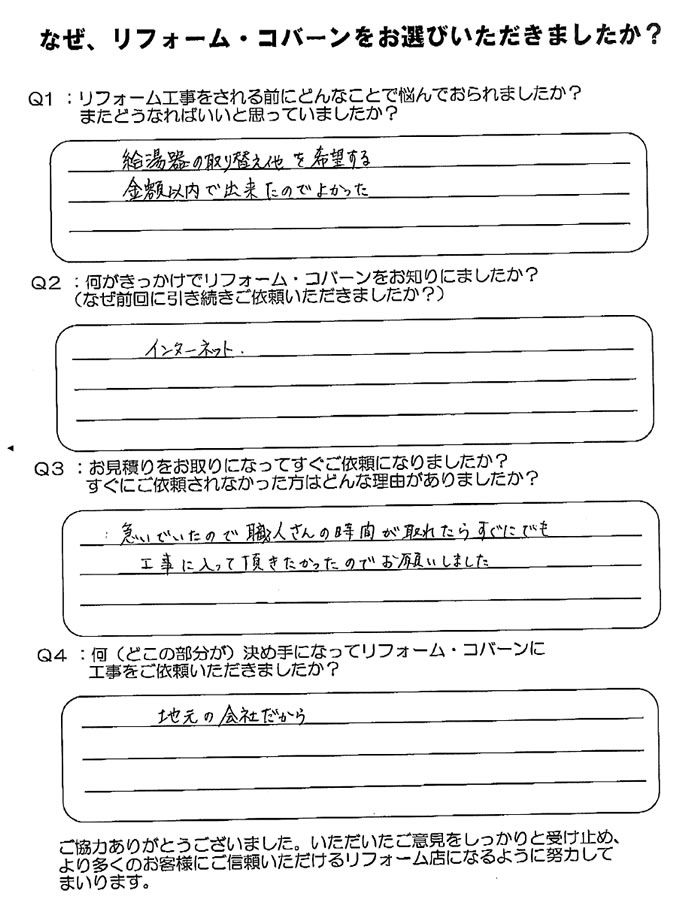 なぜ、リフォーム・コバーンをお選びいただきましたか?
Q1 :リフォーム工事をされる前にどんなことで悩んでおられましたか?
またどうなればいいと思っていましたか?
給湯器の取り替え他を希望する
金額以内で出来たのでよかった
Q2 :何がきっかけでリフォーム・コバーンをお知りにましたか?
(なぜ前回に引き続きご依頼いただきましたか?)
インターネット.
Q3 :お見積りをお取りになってすぐご依頼になりましたか?
すぐにご依頼されなかった方はどんな理由がありましたか?
急いでいたので職人さんの時間が取れたらすぐにでも
工事に入って頂きたかったのでお願いしました
Q4 :何(どこの部分が)決め手になってリフォーム・コバーンに
工事をご依頼いただきましたか?
地元の会社だから
ご協力ありがとうございました。いただいたご意見をしっかりと受け止め、
より多くのお客様にご信頼いただけるリフォーム店になるように努力して
まいります。